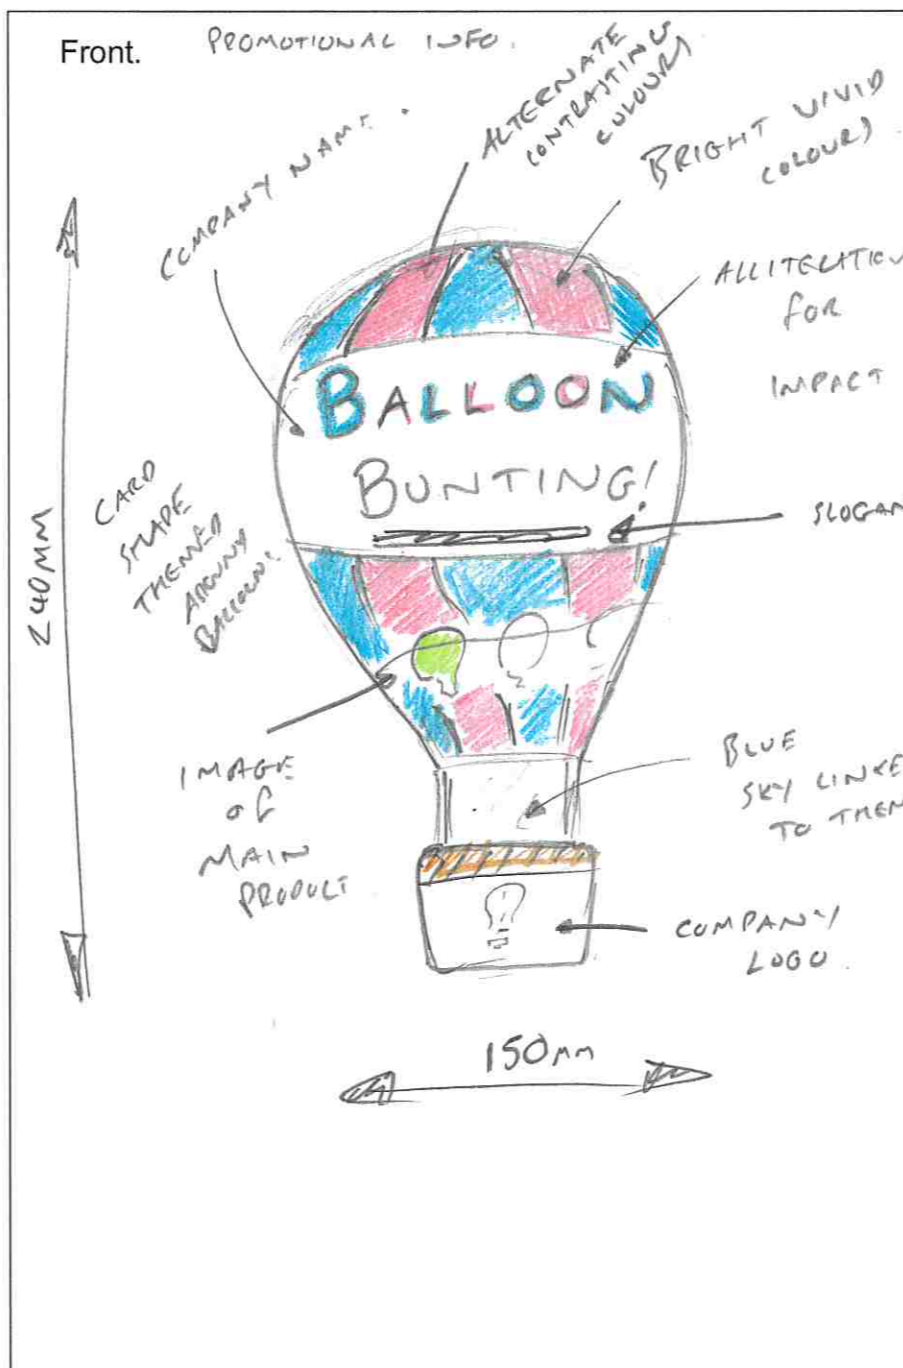 Front.
PROMOTIONAL INFO.
COMPANY NAME.
ALTERNATE
CONTRASTING
COLOURS
BRIGHT VIVID
COLOURS
ALLITERATION
FOR
IMPACT
BALLOON
BUNTING!
SLOGAN
CARD
SHAPE
THEMED
AROUND
BALLOON.
240MM
IMAGE
OF
MAIN
PRODUCT
BLUE
SKY LINKE
TO THEM
COMPANY
LOGO.
150MM